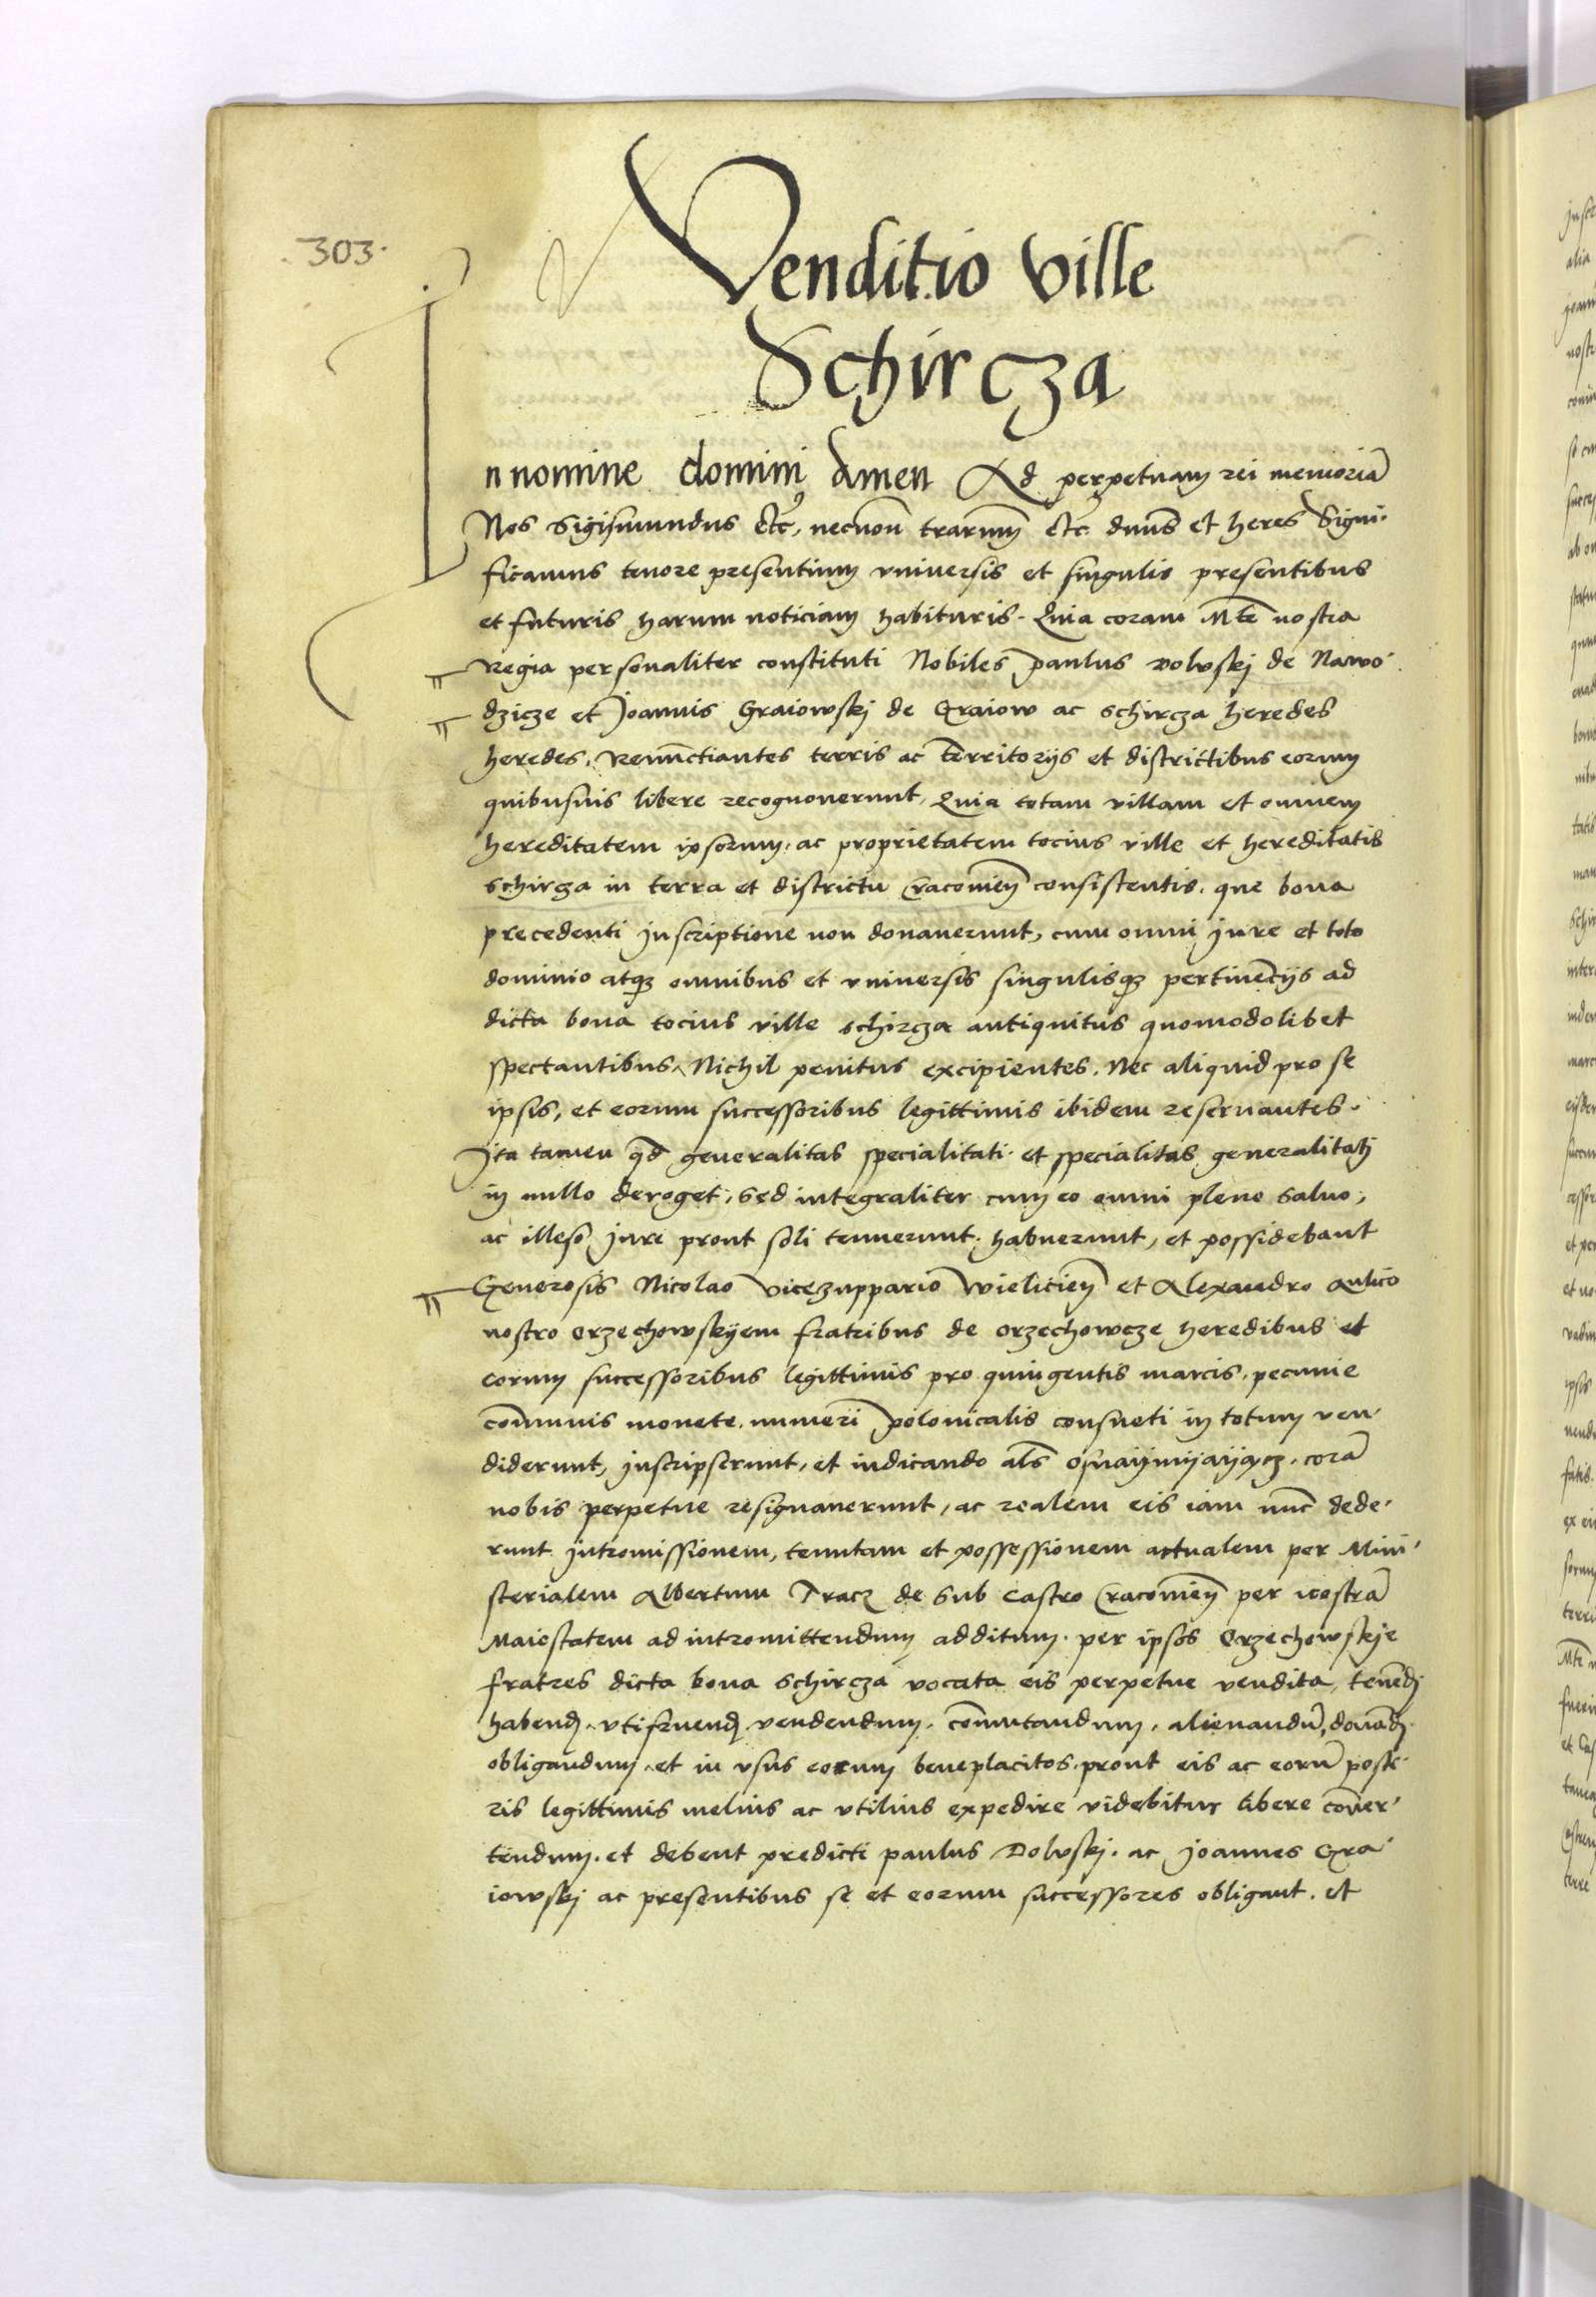 303.
Venditio ville
Schircza
In nomine domini Amen Ad perpetuam rei memoriã
Nos Sigismundus etc, necnon̄ trarum̄ etc. dnūs et heres Signi-
ficamus tenore presentium vniuersis et singulis presentibus
et futuris harum noticiam habituris. Quia coram Mte nostra
Regia personaliter constituti Nobiles paulus volvskj de Nawo-
dzicze et Joannis Graiowskj de Graiow ac schircza heredes
heredes, Renun̄ctiantes terris ac territorijs et districtibus eorum
quibusuis libere recognouerunt, Quia totam villam et omnem
hereditatem ipsorum, ac proprietatem tocius ville et hereditatis
schircza in terra et districtu Cracouien̄ consistentis. que bona
precedenti jnscriptione non donauerunt, cum omni jure et toto
dominio atqz omnibus et vniuersis singulisqz pertinen̄cijs ad
dicta bona tocius ville schircza antiquitus quomodolibet
spectantibus, Nichil penitus excipientes. Nec aliquid pro se
ipsis, et eorum successoribus legittimis ibidem reseruantes.
Ita tamen qd̄ generalitas specialitati. et specialitas generalitatj
in nullo deroget, Sed integraliter cum eo omni pleno saluo,
ac illeso jure prout soli tenuerunt. habuerunt, et possidebant
Generosis Nicolao vicezuppario wielicien̄ et Alexandro Aulico
nostro orzechowskyem fratribus de orzechowcze heredibus et
eorum successoribus legittimis pro quingentis marcis. pecunie
com̄unis monete. numeri polonicalis consueti in totum ven-
diderunt, jnscripserunt, et indicando als̄ corã
nobis perpetue resignauerunt, ac realem eis iam nun̄c dede-
runt jntromissionem, tenutam et possessionem actualem per Mini-
sterialem Albertum Tracz de Sub castro Cracouien̄ per nostrã
Maiestatem ad intromittendum additum. per ipsos Orzechowskje
fratres dicta bona schircza vocata eis perpetue vendita, tenēd̄
habend̄. vtifruend̄ vendendum. com̄utandum. alienandũ, donãd̄
obligandum. et in vsus eorum beneplacitos, prout eis ac eorũ poste-
ris legittimis melius ac vtilius expedire videbitur libere con̄uer-
tendum. et debent predicti paulus Dolvskj. ac joannes Gra-
iowskj ac presentibus se et eorum successores obligant. et